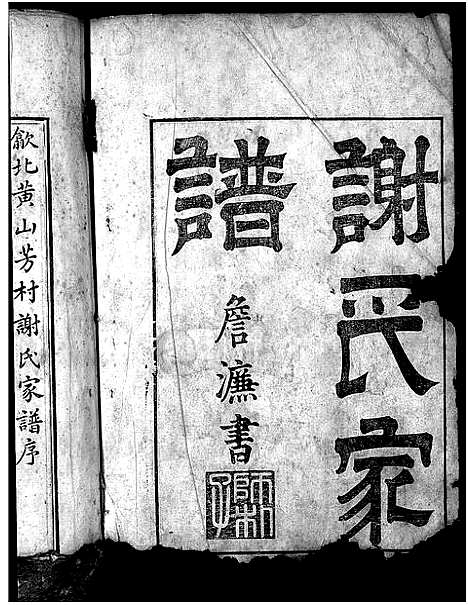 謝氏家
譜
詹濂書
歙北黄山芳村謝氏家譜序